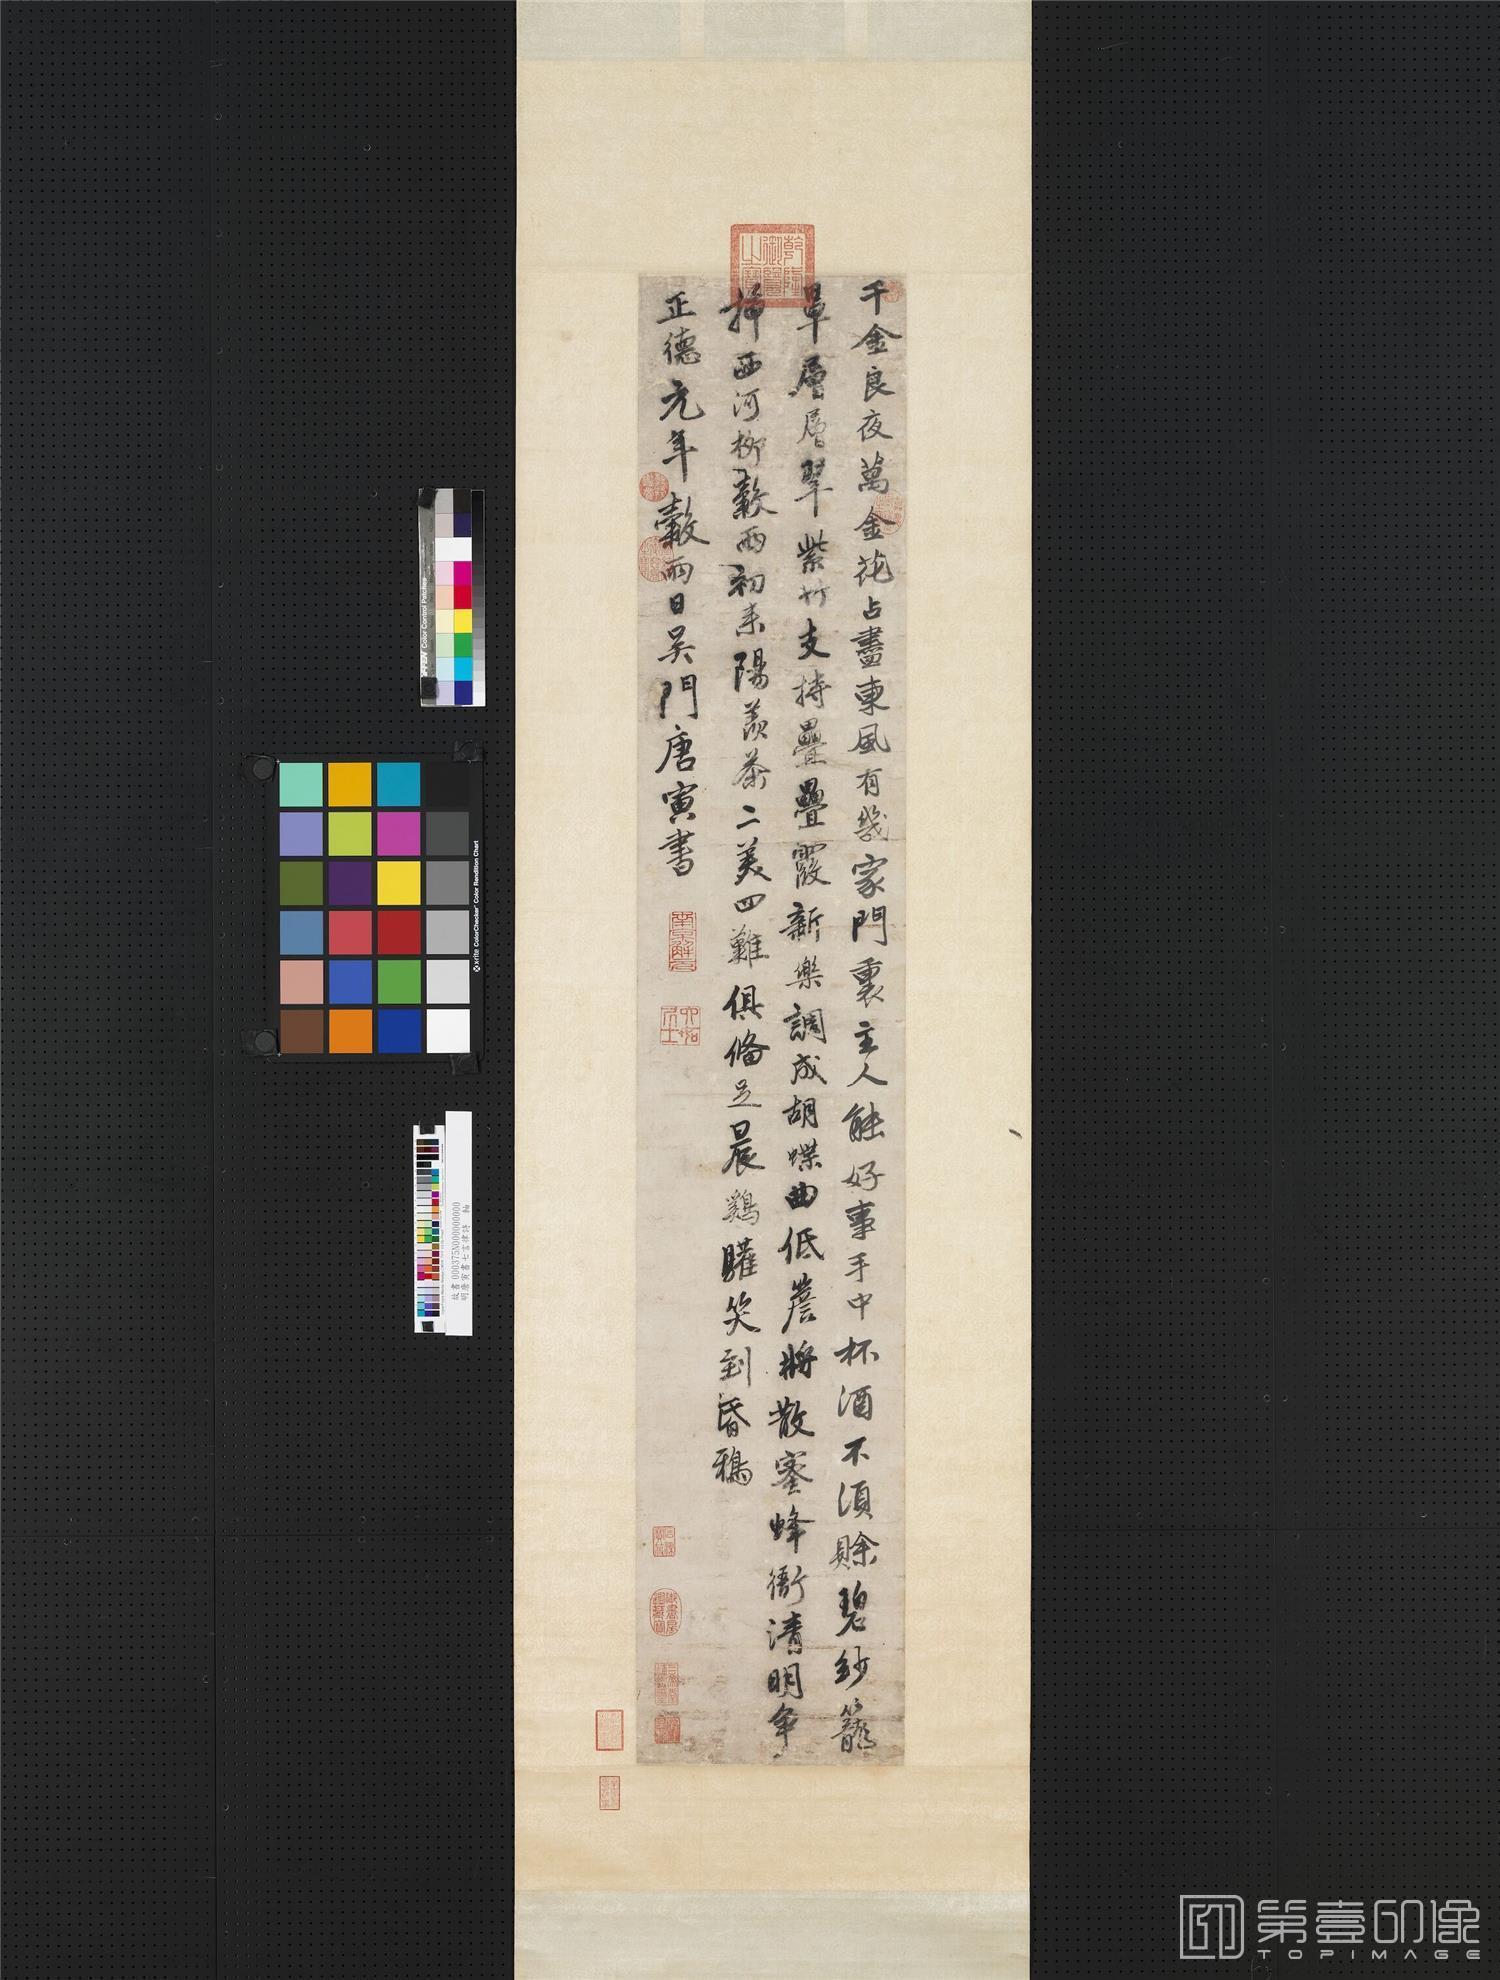 千金良夜萬金花占盡東風有幾家門裏主人能好事手中杯酒不須賒碧紗籠
罩層層翠紫竹支持疊疊霞新樂調成胡蝶曲低簷將散蜜蜂衙清明爭
插西河柳穀雨初來陽羨茶二美四難俱備足晨鷄驩笑到昏鴉
正德元年穀雨日吳門唐寅書
乾隆御覽之寶
南京解元
六如居士
故書000375N000000000
明唐寅書七言律詩 軸
x-rite ColorChecker Color Rendition Chart
Color Control Patches
第壹印像
TOPIMAGE